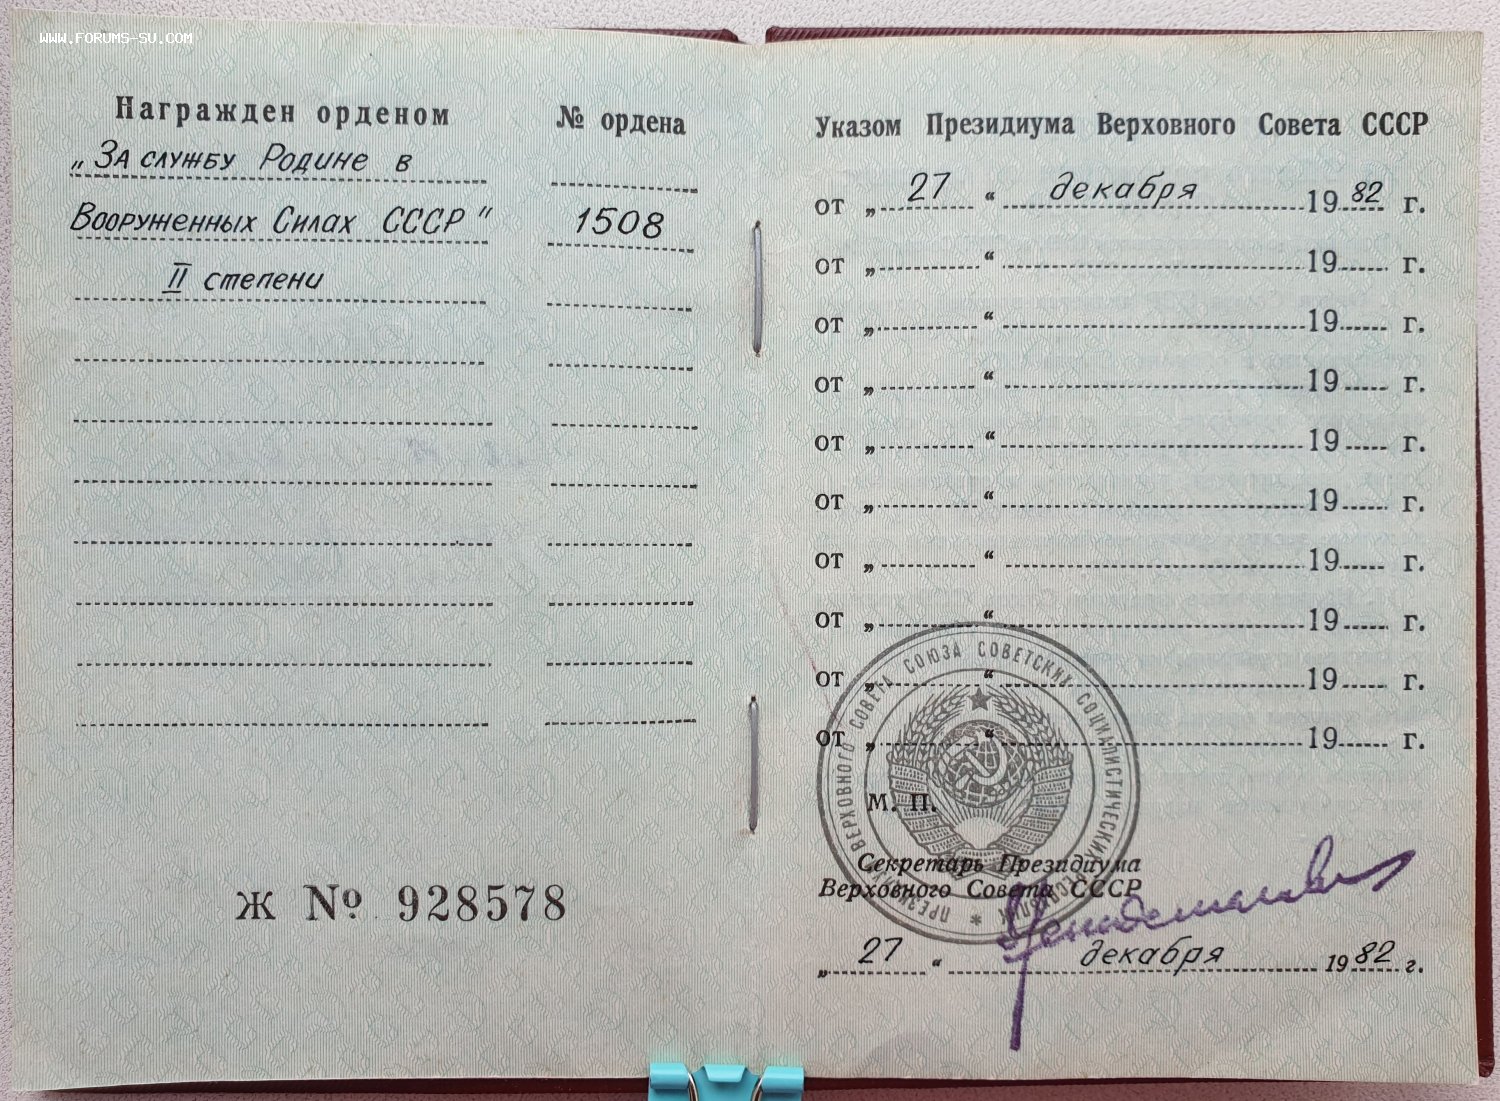 WWW.FORUMS-SU.COM
Награжден орденом
№ ордена
„За службу Родине в
Вооруженных Силах СССР"
1508
II степени
Ж № 928578
Указом Президиума Верховного Совета СССР
от „ 27 “ декабря 1982 г.
от „ “ 19 г.
от „ “ 19 г.
от „ “ 19 г.
от „ “ 19 г.
от „ “ 19 г.
от „ “ 19 г.
от „ “ 19 г.
от „ “ 19 г.
от „ “ 19 г.
ПРЕЗИДИУМ ВЕРХОВНОГО СОВЕТА СОЮЗА СОВЕТСКИХ СОЦИАЛИСТИЧЕСКИХ РЕСПУБЛИК *
М. П.
Секретарь Президиума
Верховного Совета СССР
„ 27 “ декабря 1982 г.